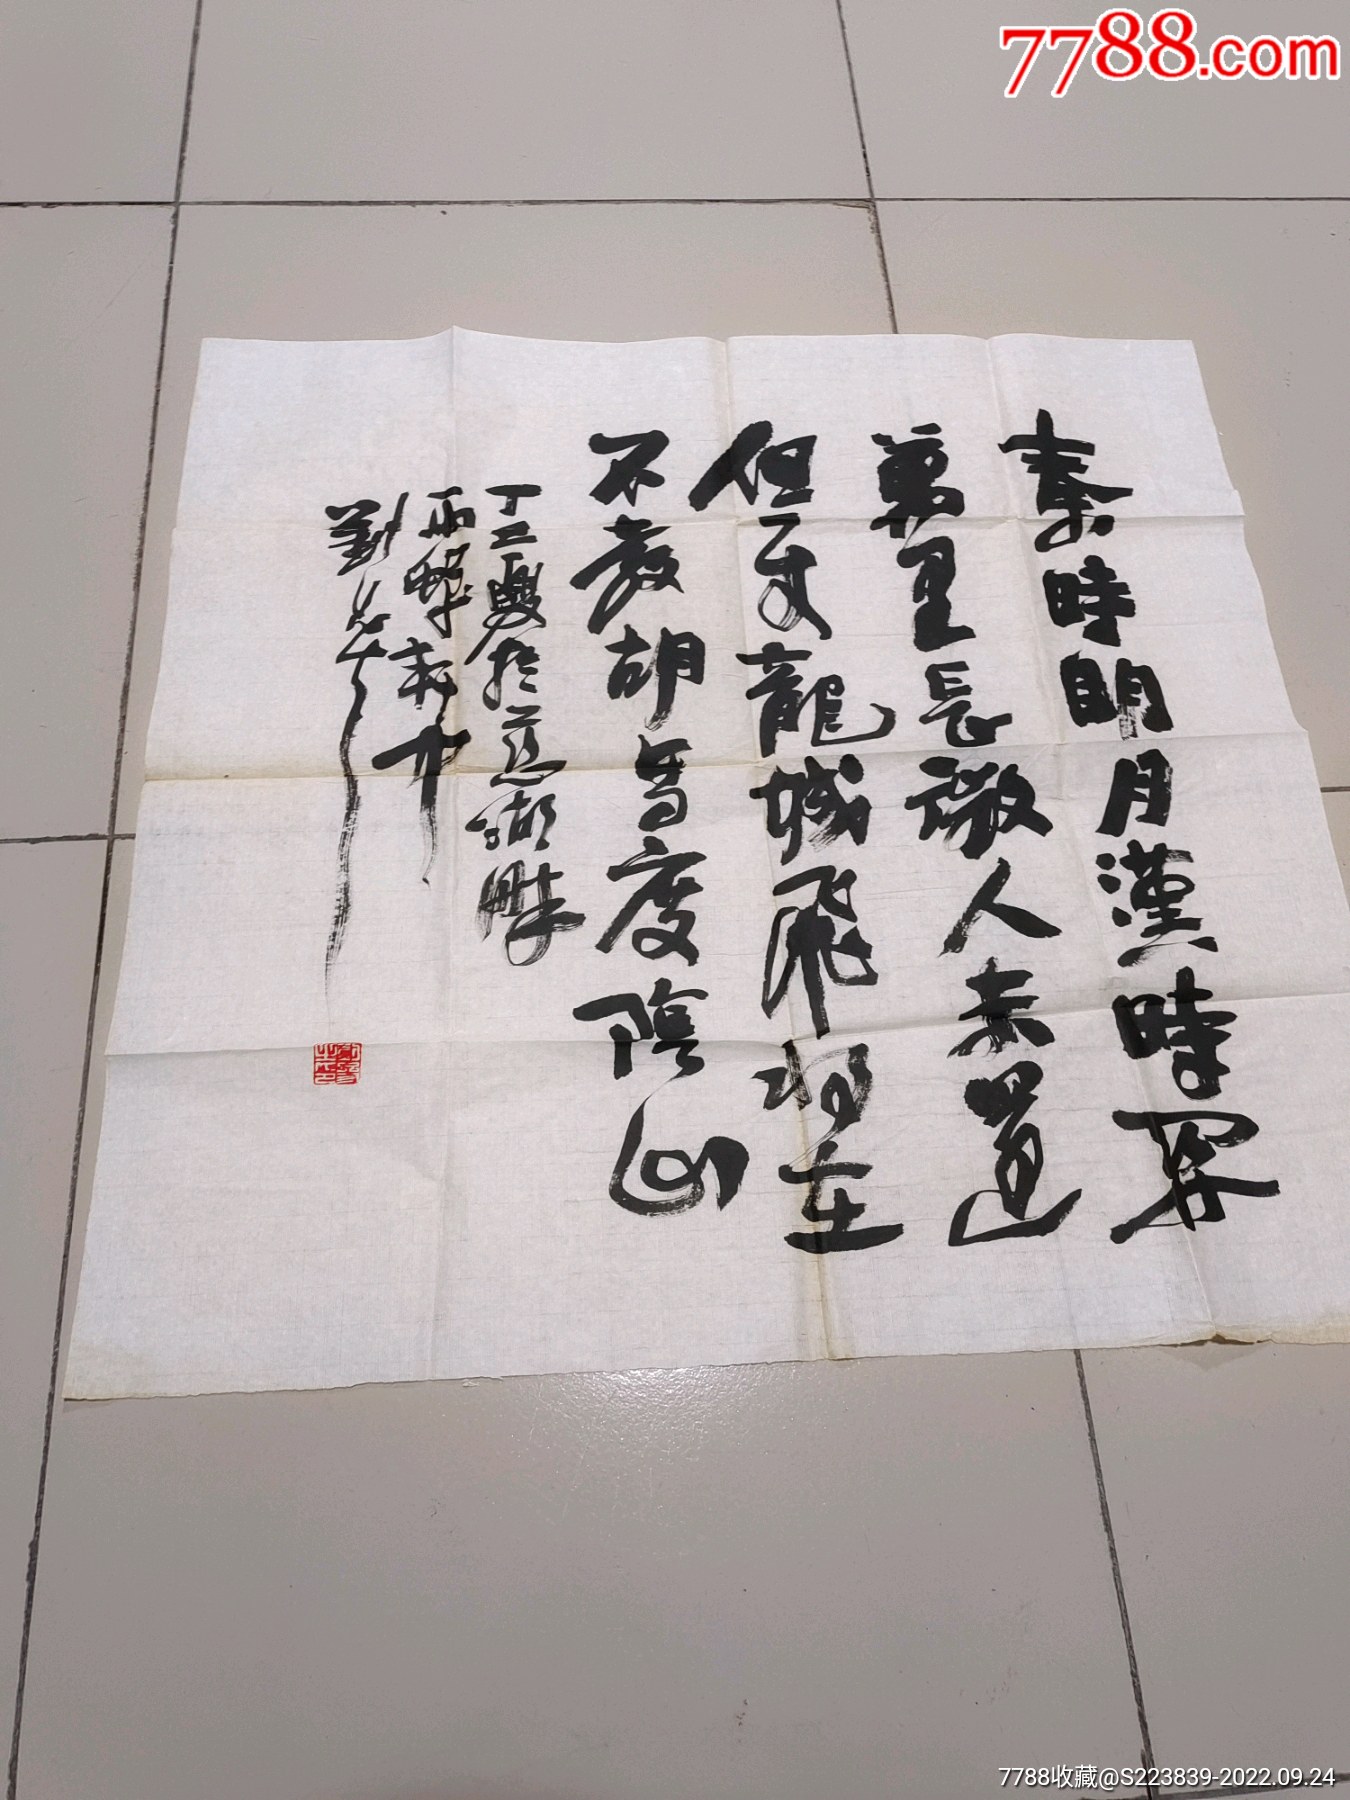 7788.com
秦時明月漢時關
萬里長徵人未還
但使龍城飛將在
不教胡馬度陰山
丁丑夏於慈湖畔
雨
劉
7788收藏@S223839-2022.09.24